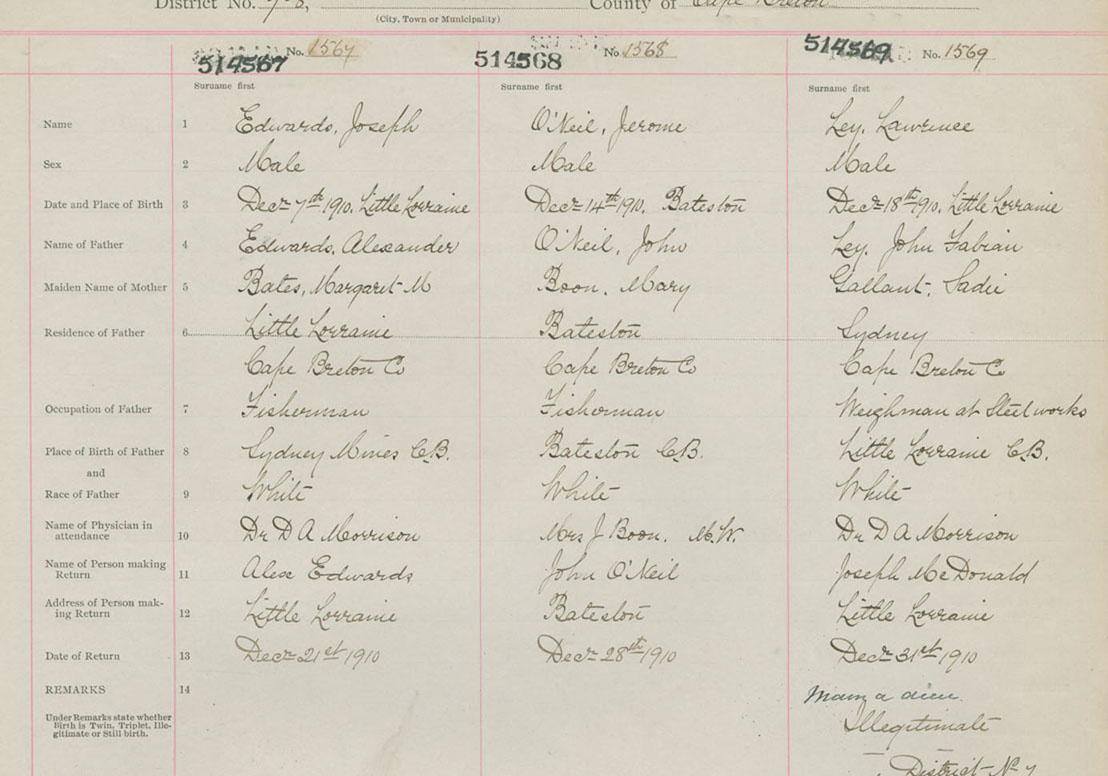 District No. 78, County of Cape Breton
(City, Town or Municipality)
514567 No. 1567 514568 No. 1568 514569 No. 1569
Surname first Surname first Surname first
Name 1 Edwards, Joseph O'Neil, Jerome Ley, Lawrence
Sex 2 Male Male Male
Date and Place of Birth 3 Decr 7th 1910. Little Lorraine Decr 14th 1910. Bateston Decr 18th 1910. Little Lorraine
Name of Father 4 Edwards, Alexander O'Neil, John Ley, John Fabian
Maiden Name of Mother 5 Bates, Margaret M Boon, Mary Gallant, Sadie
Residence of Father 6 Little Lorraine Bateston Sydney
Cape Breton Co Cape Breton Co Cape Breton Co
Occupation of Father 7 Fisherman Fisherman Weighman at Steel works
Place of Birth of Father 8 Sydney Mines C.B. Bateston C.B. Little Lorraine C.B.
and
Race of Father 9 White White White
Name of Physician in
attendance 10 Dr D A Morrison Mrs J Boon. M.W. Dr D A Morrison
Name of Person making
Return 11 Alex Edwards John O'Neil Joseph McDonald
Address of Person mak-
ing Return 12 Little Lorraine Bateston Little Lorraine
Date of Return 13 Decr 21st 1910 Decr 28th 1910 Decr 31st 1910
REMARKS 14
Under Remarks state whether
Birth is Twin, Triplet, Ille-
gitimate or Still birth.
Illegitimate
District No 7